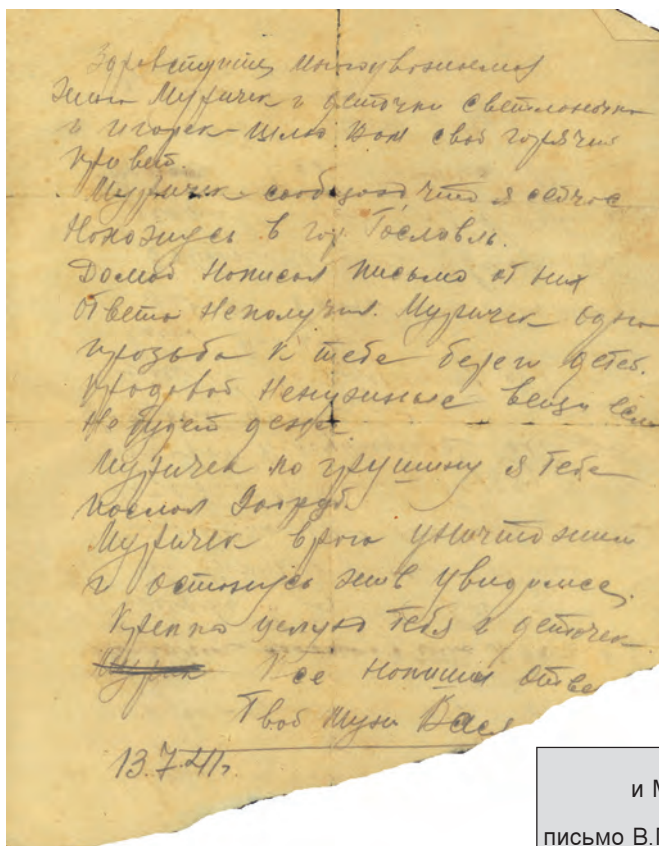 Здравствуйте, многоуважаемая
жена Мурочек и деточки Светланочка
и Игорек - шлю Вам свой горячий
привет.
Мурочек - сообщаю, что я сейчас
нахожусь в гор.
Домой написал письмо от них
ответа неполучил. Мурочек одна
прозьба к тебе береги детей.
продовай ненужные вещи если
не будет денег.
Мурочек по я тебе
послал
Мурочек врага уничтожим
и останусь жив увидимся.
Крепко целую тебя и деточек
Твой муж Вася
13.7.41г.
и М
письмо В.П